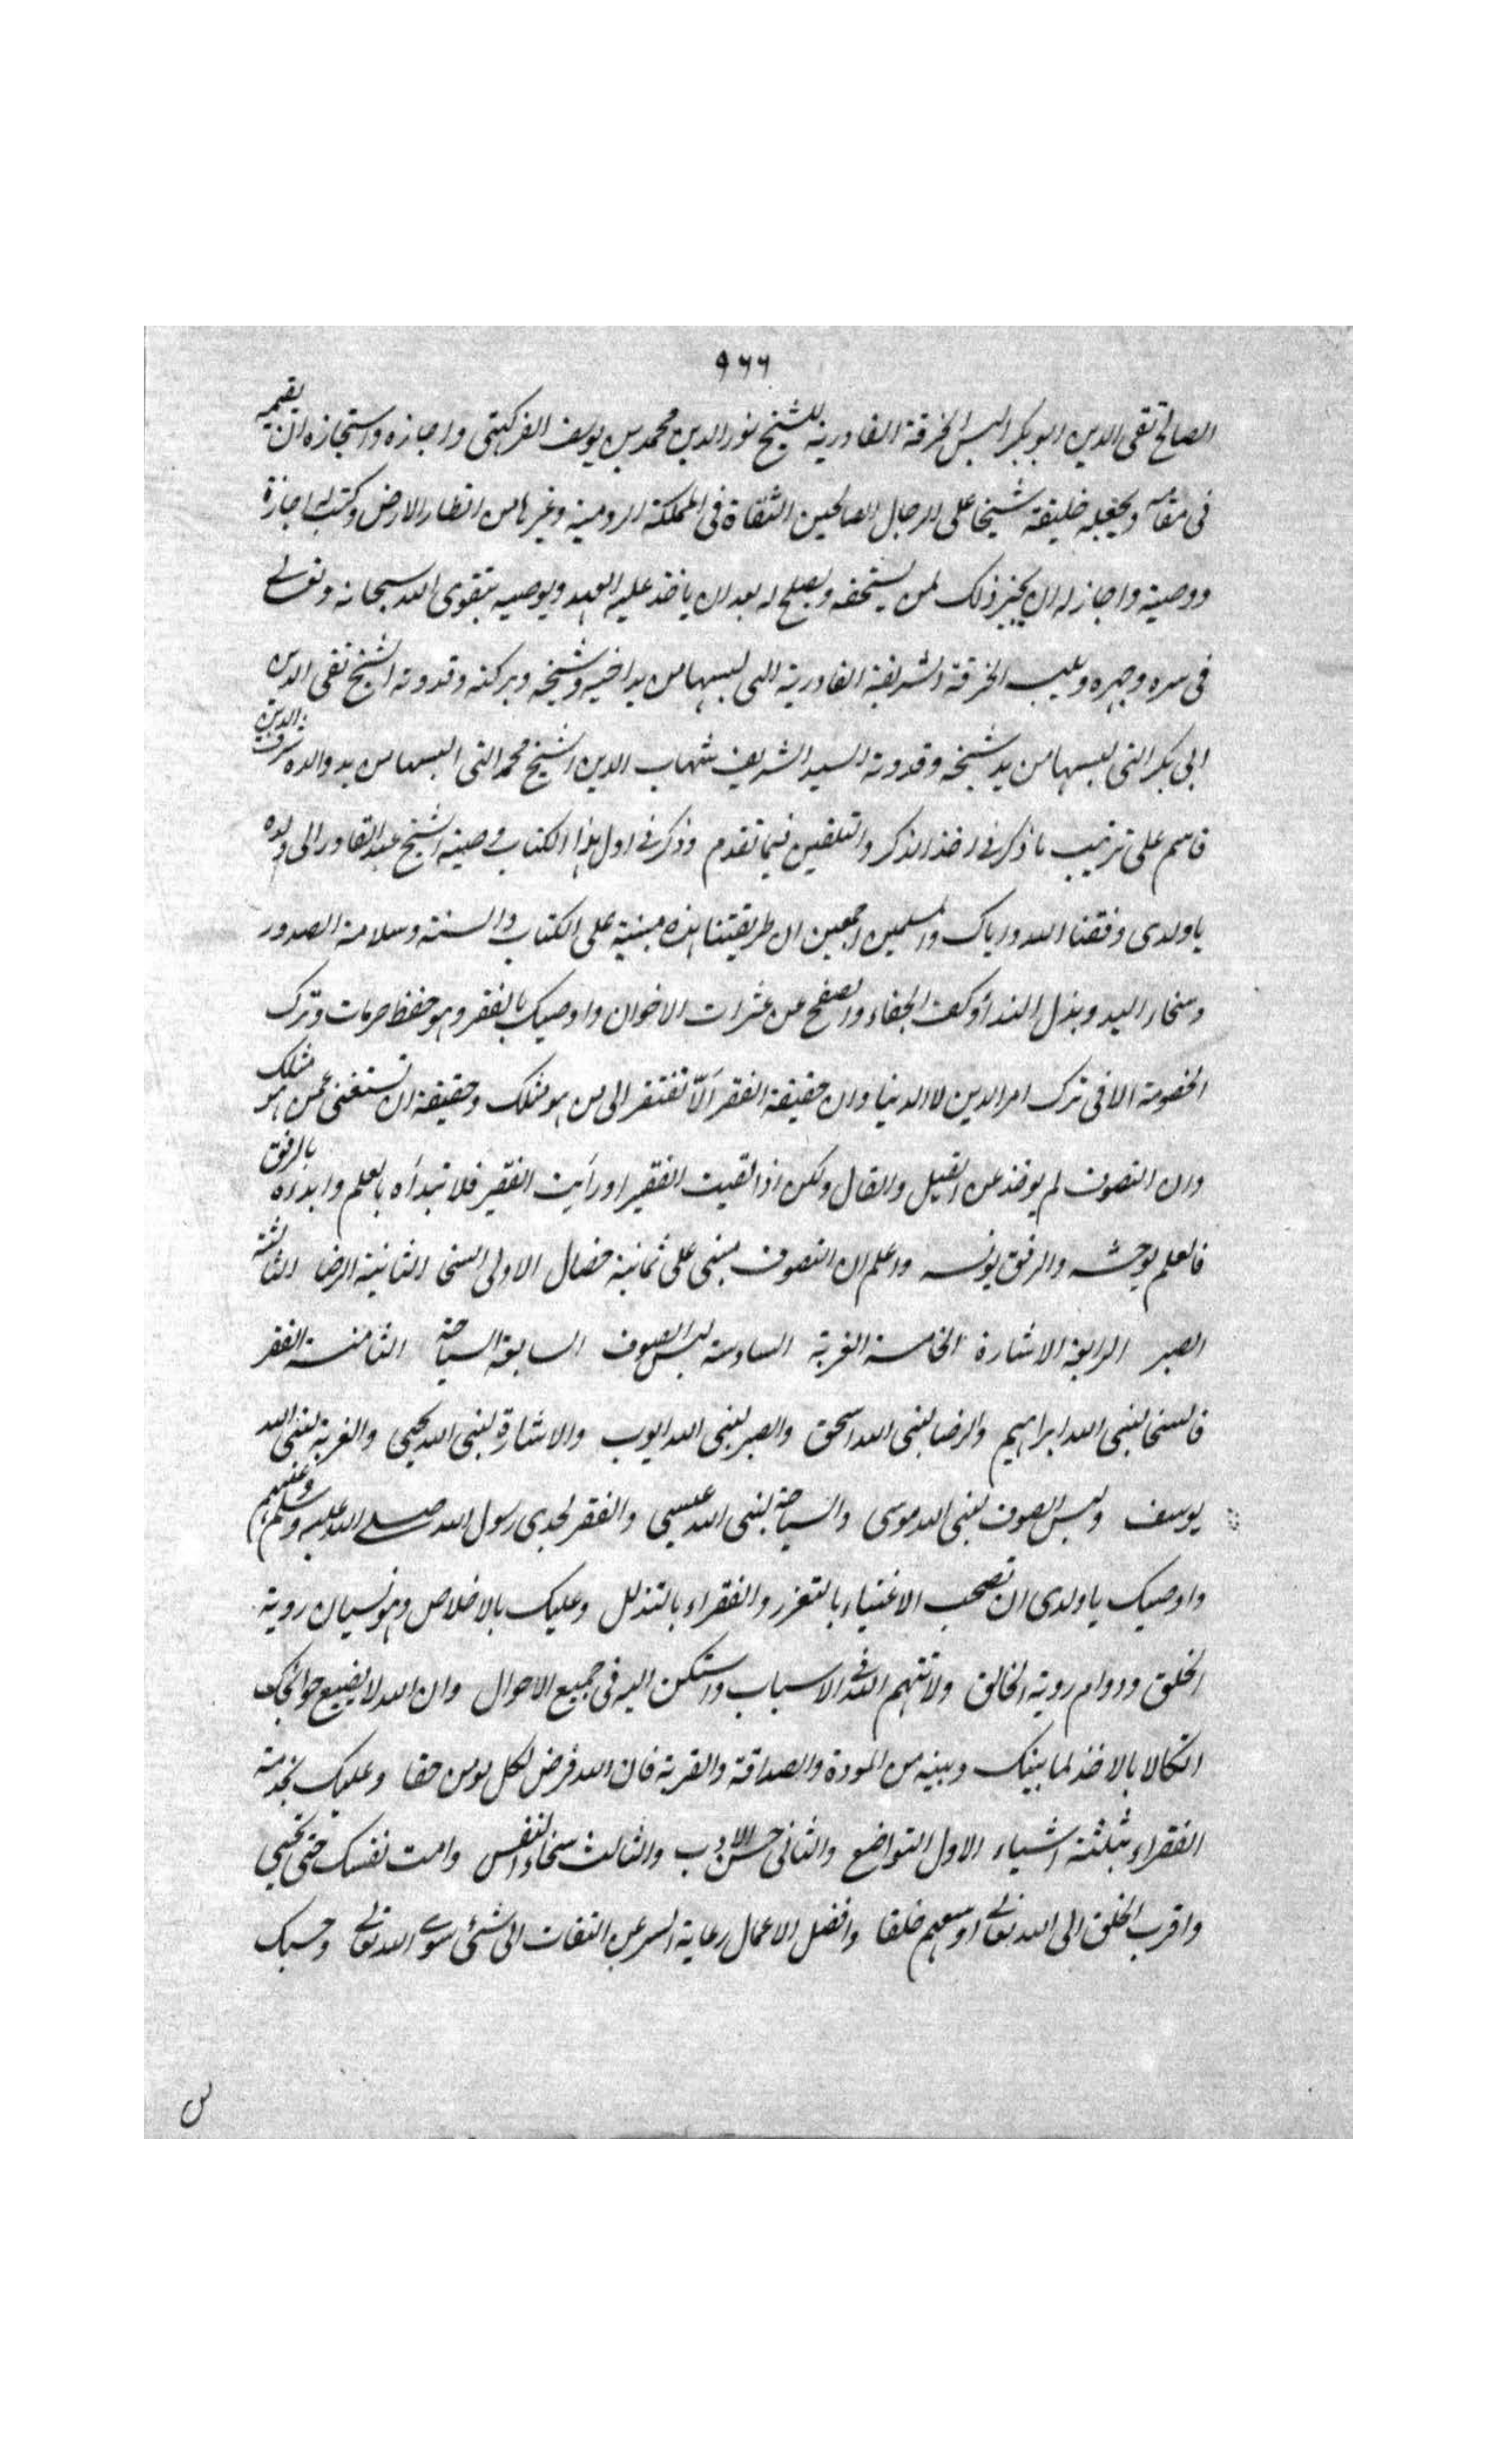 ٩٦٦
الصالح تقی الدین ابو بکر البس الخرقة القادریة للشیخ نور الدین محمد بن یوسف واجازه واستجازه ان یقیمه
فی مقامه ویجعله خلیفة شیخا علی الرجال الصالحین الثقاة فی المملکة الرومیة وغیرها من اقطار الارض وکتب له اجازة
ووصیة واجاز له ان یجیز ذلک لمن یستحقه ویصلح له بعد ان یاخذ علیه العهد ویوصیه بتقوی الله سبحانه وتعالے
فی سره وجهره ویلبسه الخرقة الشریفة القادریة التی لبسها من ید اخیه وشیخه وبرکته وقدوته الشیخ تقی الدین
ابی بکر التی لبسها من ید شیخه وقدوته السید الشریف شهاب الدین الشیخ محمد التی البسها من ید والده شرف الدین
قاسم علی ترتیب ما ذکر فی اخذ الذکر والتلقین فیما تقدم وذکر فی اول هذا الکتاب وصیة الشیخ عبد القادر الی ولده
یا ولدی وفقنا الله وایاک والمسلمین اجمعین ان طریقتنا هذه مبنیة علی الکتاب والسنة وسلامة الصدور
وسخاء الید وبذل الندا وکف الجفاء والصفح عن عثرات الاخوان واوصیک بالفقر وهو حفظ حرمات وترک
الخصومة الا فی ترک امر الدین لا الدنیا وان حقیقة الفقر الّا تفتقر الی من هو مثلک وحقیقة ان تستغنی عمن هو مثلک
وان التصوف لم یوخذ عن القیل والقال ولکن اذا لقیت الفقیر او رأیت الفقیر فلا تبدأه بالعلم وابدأه بالرفق
فالعلم یوحشه والرفق یونسه واعلم ان التصوف مبنی علی ثمانیة خصال الاولی السخا الثانیة الرضا الثالثة
الصبر الرابعة الاشارة الخامسة الغربة السادسة لبس الصوف السابعة السیاحة الثامنة الفقر
فالسخا لنبی الله ابراهیم والرضا لنبی الله اسحق والصبر لنبی الله ایوب والاشارة لنبی الله یحیی والغربة لنبی الله
یوسف ولبس الصوف لنبی الله موسی والسیاحة لنبی الله عیسی والفقر لجدی رسول الله صلے الله علیه وسلم وعلیهم
واوصیک یا ولدی ان تصحب الاغنیاء بالتعزز والفقراء بالتذلل وعلیک بالاخلاص وهو نسیان رویة
الخلق ودوام رویة الخالق ولا تتهم الله فی الاسباب واستکن الیه فی جمیع الاحوال وان الله لا یضیع حوائجک
اتکالا بالاخذ لما بینک وبینه من المودة والصداقة والقربة فان الله فرض لکل مومن حقا وعلیک بخدمة
الفقراء بثلثة اشیاء الاول التواضع والثانی حسن الادب والثالث سخاء النفس وامت نفسک حتی تحیی
واقرب الخلق الی الله تعالے اوسعهم خلقا وافضل الاعمال رعایة السر عن التفات الی شئی سوے الله تعالے وحسبک